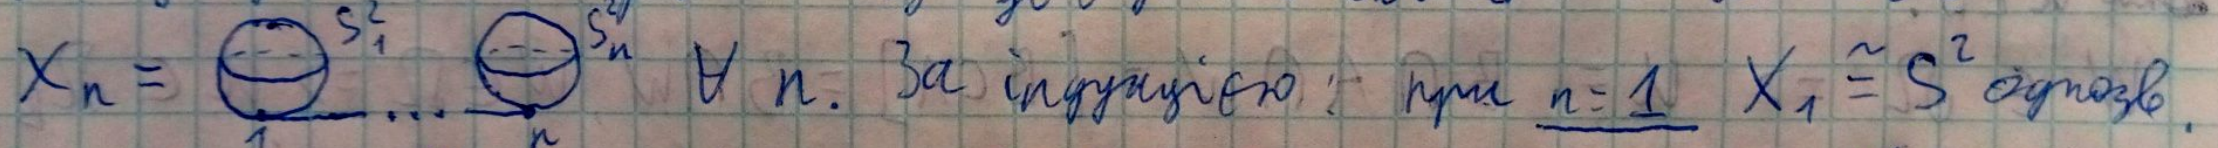 Xₙ = S₁² ... Sₙ² ∀ n. За індукцією: при n=1 X₁ ≅ S² однозв.
1 ... n